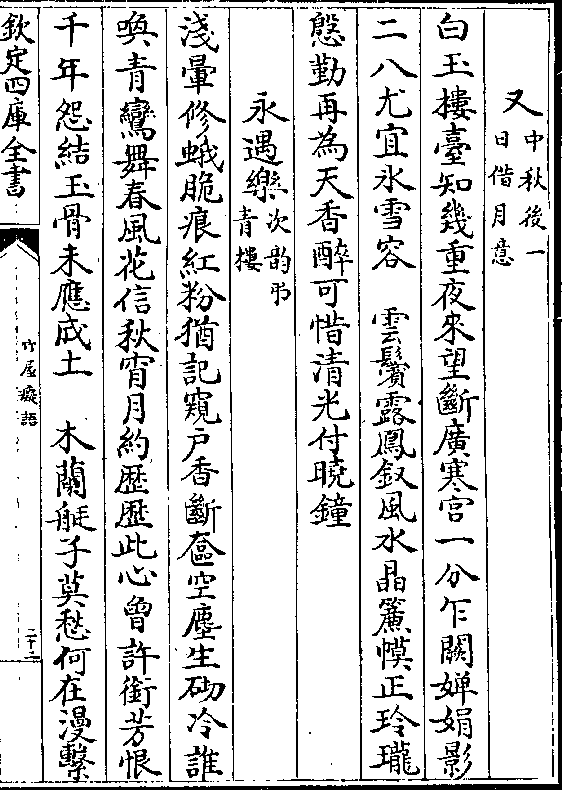 又中秋後一日偕月意
白玉樓臺知幾重夜來望斷廣寒宮一分乍闕嬋娟影
二八尤宜氷雪容　雲鬢露鳳釵風水晶簾幙正玲瓏
慇勤再為天香醉可惜清光付曉鐘
永遇樂次韵弔青樓
淺暈修蛾脆痕紅粉猶記窺戶香斷奩空塵生砌冷誰
喚青鸞舞春風花信秋宵月約歴歴此心曾許銜芳恨
千年怨結玉骨未應成土　木蘭艇子莫愁何在漫繫
欽定四庫全書
竹屋癡語
二十二